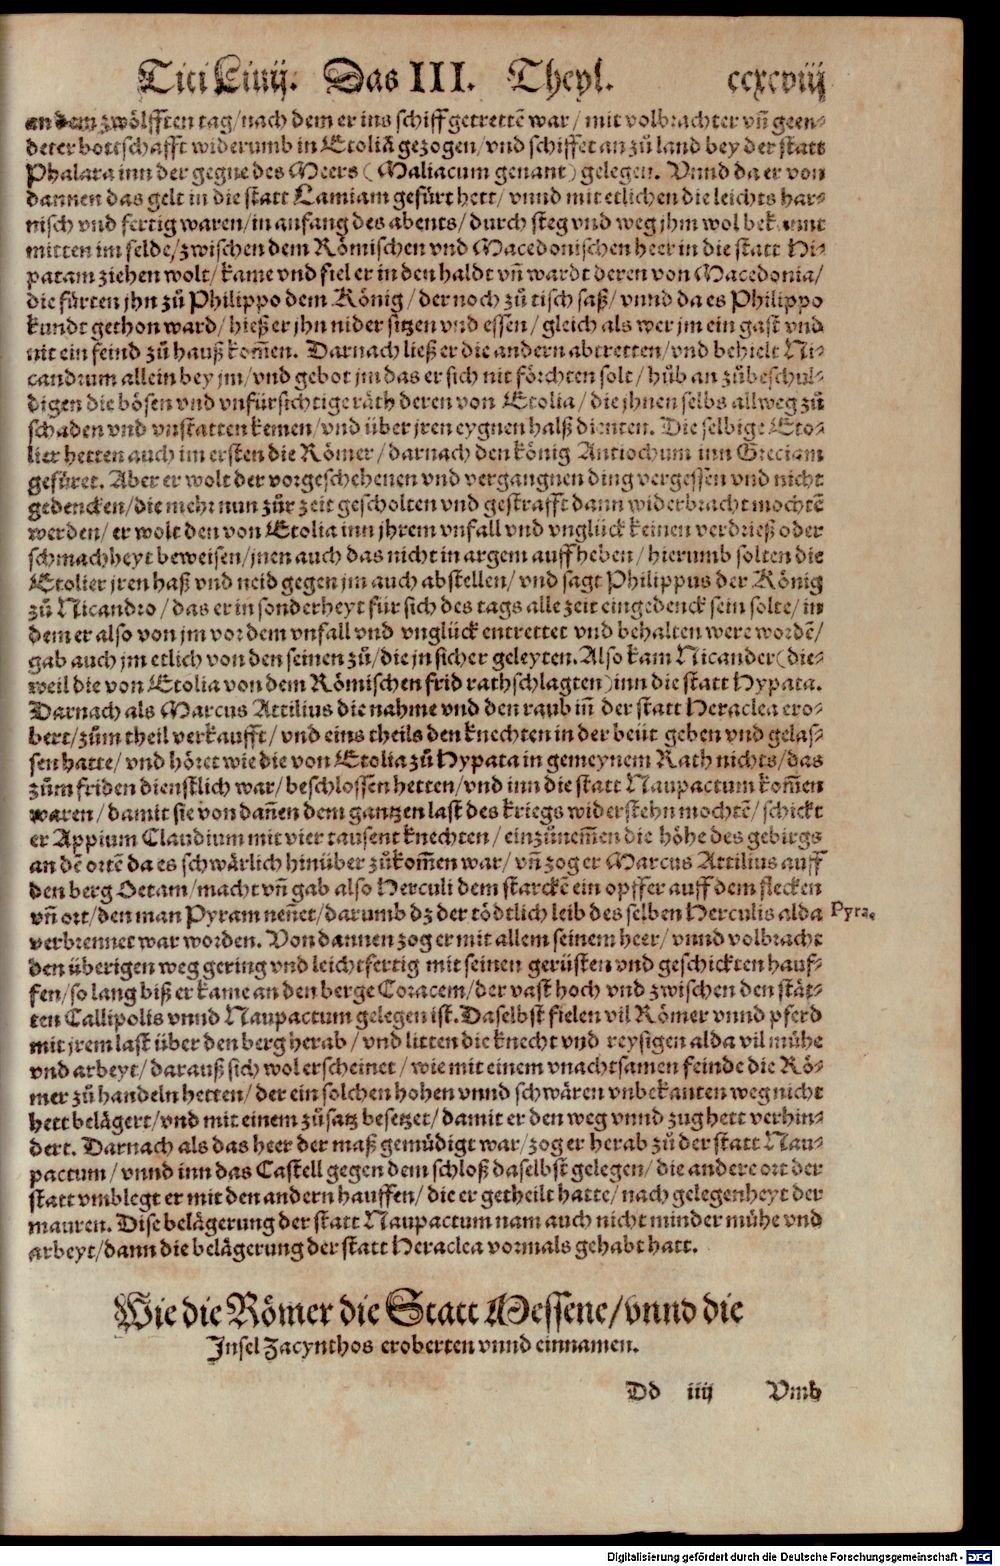 Titi Liuij. Das III. Theyl. ccxcviij
an dem zwölfften tag/nach dem er ins schiff getrettē war/ mit volbrachter vñ geen-
deter bottschafft widerumb in Etoliā gezogen/vnd schiffet an zů land bey der statt
Phalara inn der gegne des Meers (Maliacum genant) gelegen. Vnnd da er von
dannen das gelt in die statt Lamiam gefürt hett/ vnnd mit etlichen die leichts har-
nisch vnd fertig waren/in anfang des abents/ durch steg vnd weg jhm wol bekannt
mitten im felde/zwischen dem Römischen vnd Macedonischen heer in die statt Hi-
patam ziehen wolt/ kame vnd fiel er in den haldt vñ wardt deren von Macedonia/
die fürten jhn zů Philippo dem König/ der noch zů tisch saß/ vnnd da es Philippo
kundt gethon ward/ hieß er jhn nider sitzen vnd essen/ gleich als wer jm ein gast vnd
nit ein feind zů hauß kom̃en. Darnach ließ er die andern abtretten/vnd behielt Ni-
candrum allein bey jm/vnd gebot jm das er sich nit förchten solt/ hůb an zůbeschul-
digen die bösen vnd vnfürsichtige räth deren von Etolia/ die jhnen selbs allweg zů
schaden vnd vnstatten kemen/vnd über jren eygnen halß dienten. Die selbige Eto-
lier hetten auch im ersten die Römer/ darnach den könig Antiochum inn Greciam
gefüret. Aber er wolt der vorgeschehenen vnd vergangnen ding vergessen vnd nicht
gedencken/die mehr nun zůr zeit gescholten vnd gestrafft dann widerbracht mochtē
werden/ er wolt den von Etolia inn jhrem vnfall vnd vnglück keinen verdrieß oder
schmachheyt beweisen/jnen auch das nicht in argem auffheben/ hierumb solten die
Etolier jren haß vnd neid gegen jm auch abstellen/ vnd sagt Philippus der König
zů Nicandro/ das er in sonderheyt für sich des tags alle zeit eingedenck sein solte/ in
dem er also von jm vor dem vnfall vnd vnglück entrettet vnd behalten were wordē/
gab auch jm etlich von den seinen zů/die jn sicher geleyten. Also kam Nicander(die-
weil die von Etolia von dem Römischen frid rathschlagten)inn die statt Hypata.
Darnach als Marcus Attilius die nahme vnd den raub in̄ der statt Heraclea ero-
bert/zům theil verkaufft/ vnd eins theils den knechten in der beüt geben vnd gelas-
sen hatte/ vnd höret wie die von Etolia zů Hypata in gemeynem Rath nichts/das
zům friden dienstlich war/ beschlossen hetten/vnd inn die statt Naupactum kom̃en
waren/ damit sie von dañen dem gantzen last des kriegs widerstehn mochtē/ schickt
er Appium Claudium mit vier tausent knechten/ einzůnem̃en die höhe des gebirgs
an dē ortē da es schwärlich hinüber zůkom̃en war/ vñ zog er Marcus Attilius auff
den berg Oetam/ macht vñ gab also Herculi dem starckē ein opffer auff dem flecken
vñ ort/ den man Pyram neñet/darumb dz der tödtlich leib des selben Herculis alda
Pyra.
verbrennet war worden. Von dannen zog er mit allem seinem heer/ vnnd volbracht
den überigen weg gering vnd leichtfertig mit seinen gerüsten vnd geschickten hauf-
fen/so lang biß er kame an den berge Coracem/der vast hoch vnd zwischen den stät-
ten Callipolis vnnd Naupactum gelegen ist. Daselbst fielen vil Römer vnnd pferd
mit jrem last über den berg herab/ vnd litten die knecht vnd reysigen alda vil mühe
vnd arbeyt/ darauß sich wol erscheinet/ wie mit einem vnachtsamen feinde die Rö-
mer zů handeln hetten/ der ein solchen hohen vnnd schwären vnbekanten weg nicht
hett belägert/vnd mit einem zůsatz besetzet/ damit er den weg vnnd zug hett verhin-
dert. Darnach als das heer der maß gemüdigt war/ zog er herab zů der statt Nau-
pactum/ vnnd inn das Castell gegen dem schloß daselbst gelegen/ die andere ort der
statt vmblegt er mit den andern hauffen/ die er getheilt hatte/ nach gelegenheyt der
mauren. Dise belägerung der statt Naupactum nam auch nicht minder mühe vnd
arbeyt/dann die belägerung der statt Heraclea vormals gehabt hatt.
Wie die Römer die Statt Messene/vnnd die
Insel Zacynthos eroberten vnnd einnamen.
Dd iiij Vmb
Digitalisierung gefördert durch die Deutsche Forschungsgemeinschaft - DFG